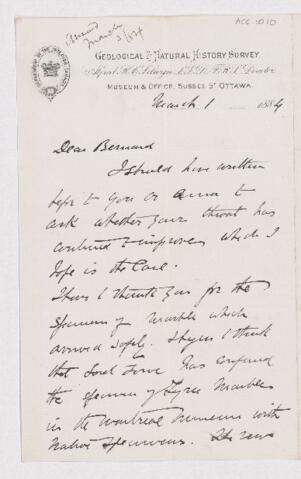 ACC 1010
March
3/84
GEOLOGICAL & NATURAL HISTORY SURVEY.
Alfred R. C. Selwyn, L.L.D., F.R.S., Director.
MUSEUM & OFFICE, SUSSEX ST OTTAWA.
March 1 1884
Dear Bernard
I should have written
before to you or Anna to
ask whether your throat has
continued to improve which I
hope is the case.
I have to thank you for the
specimen of marble which
arrived safely. I begin to think
that Lord Lorne has confused
the specimen of Tyree Marble
in the Montreal Museum with
native specimens.